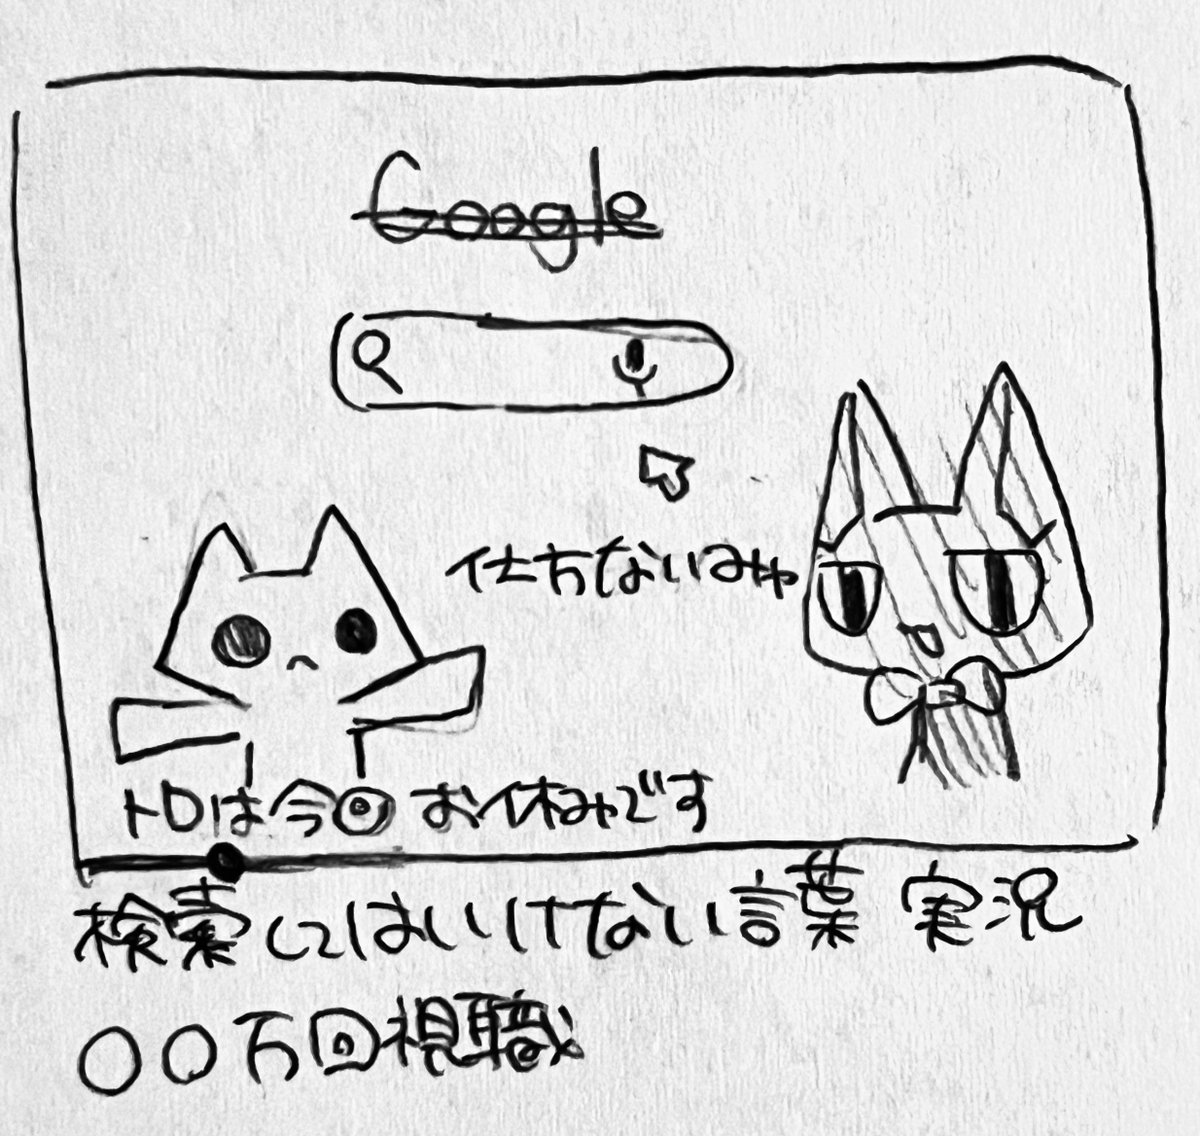 Google
仕方ないみゃ
トロは今回お休みです
検索してはいけない言葉 実況
○○万回視聴